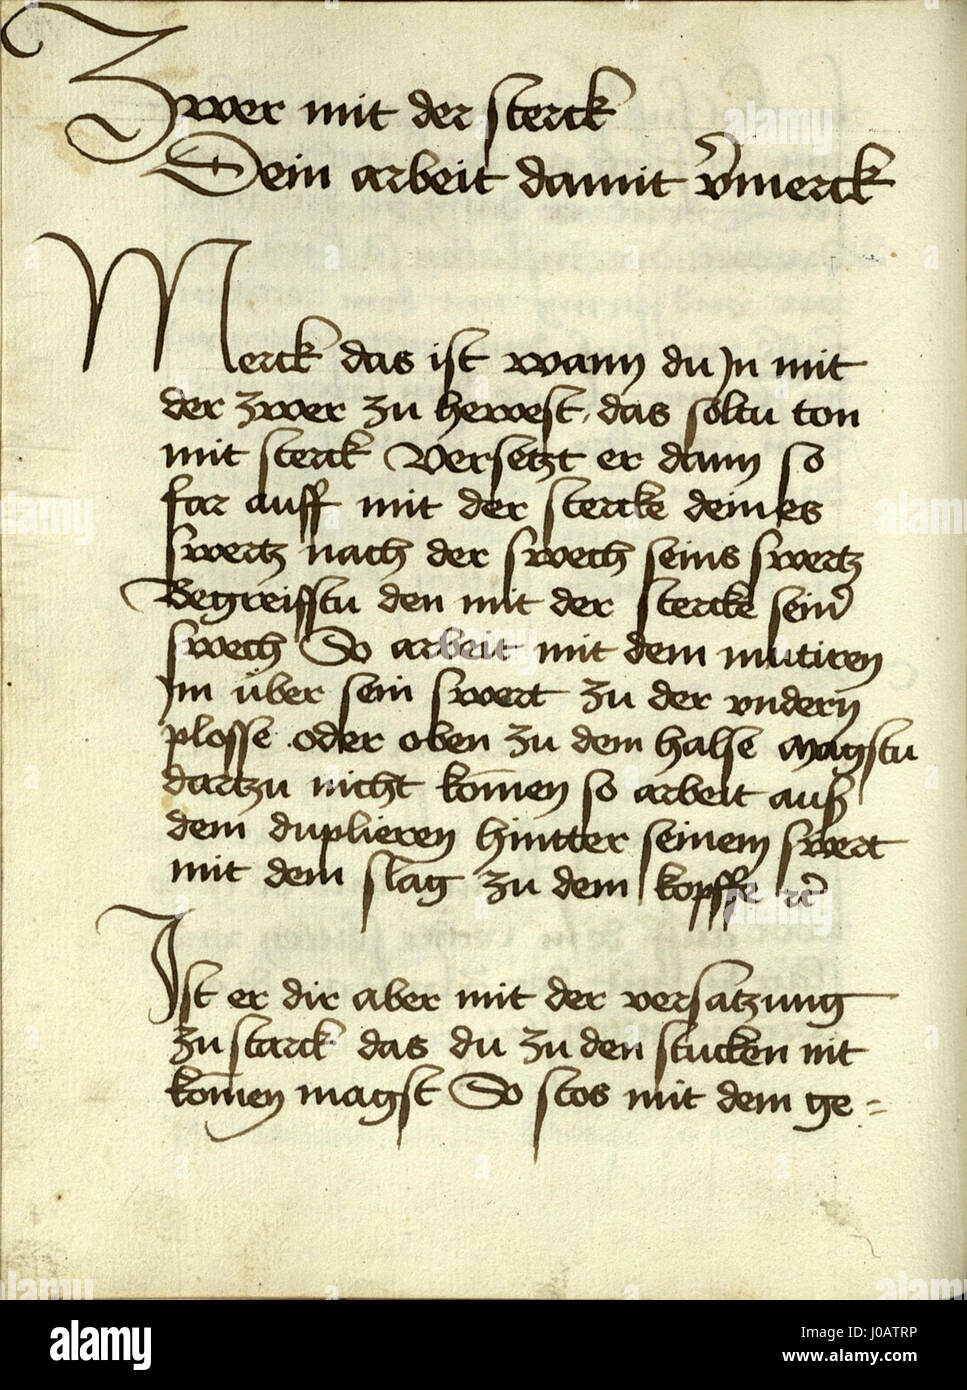 Zwer mit der sterck
Dein arbeit damit v̄merck
Merck das ist wann du Jn mit
der zwer zu hewest · das soltu ton
mit sterck Versetzt er dann so
far auff mit der stercke deines
swertz nach der swech seins swertz
Begreifstu den mit der stercke sein̄
swech So arbeit mit dem mutiren
Jm über sein swert zu der vndern
plosse oder oben zu dem halse magstu
dartzu nicht kom̄en so arbeit auß
dem duplieren hintter seinem swert
mit dem slag zu dem kopffe
Ist er dir aber mit der versatzung
zu starck das du zu den stucken nit
kom̄en magst So stos mit dem ge=
alamy
Image ID: J0ATRP
www.alamy.com